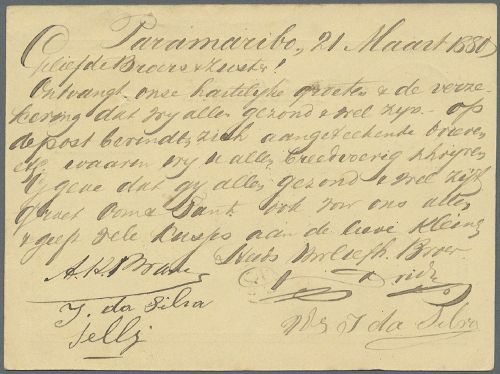 Paramaribo, 21 Maart 1880
Geliefde Broers & Zusters!
Ontvangt onze hartelijke groeten & de verze-
kering dat wy allen gezond & wel zyn. op
de post bevinden zich aangeteekende brieven
waarin wy U allen breedvoerig schryven
geve dat gy allen gezond & wel zijt
groet Oom & Tante ook voor ons allen
& geeft vele kusjes aan de lieve kleine
Uw Liefh. Broer
A. K.
J. da Silva
Selly
J da Silva